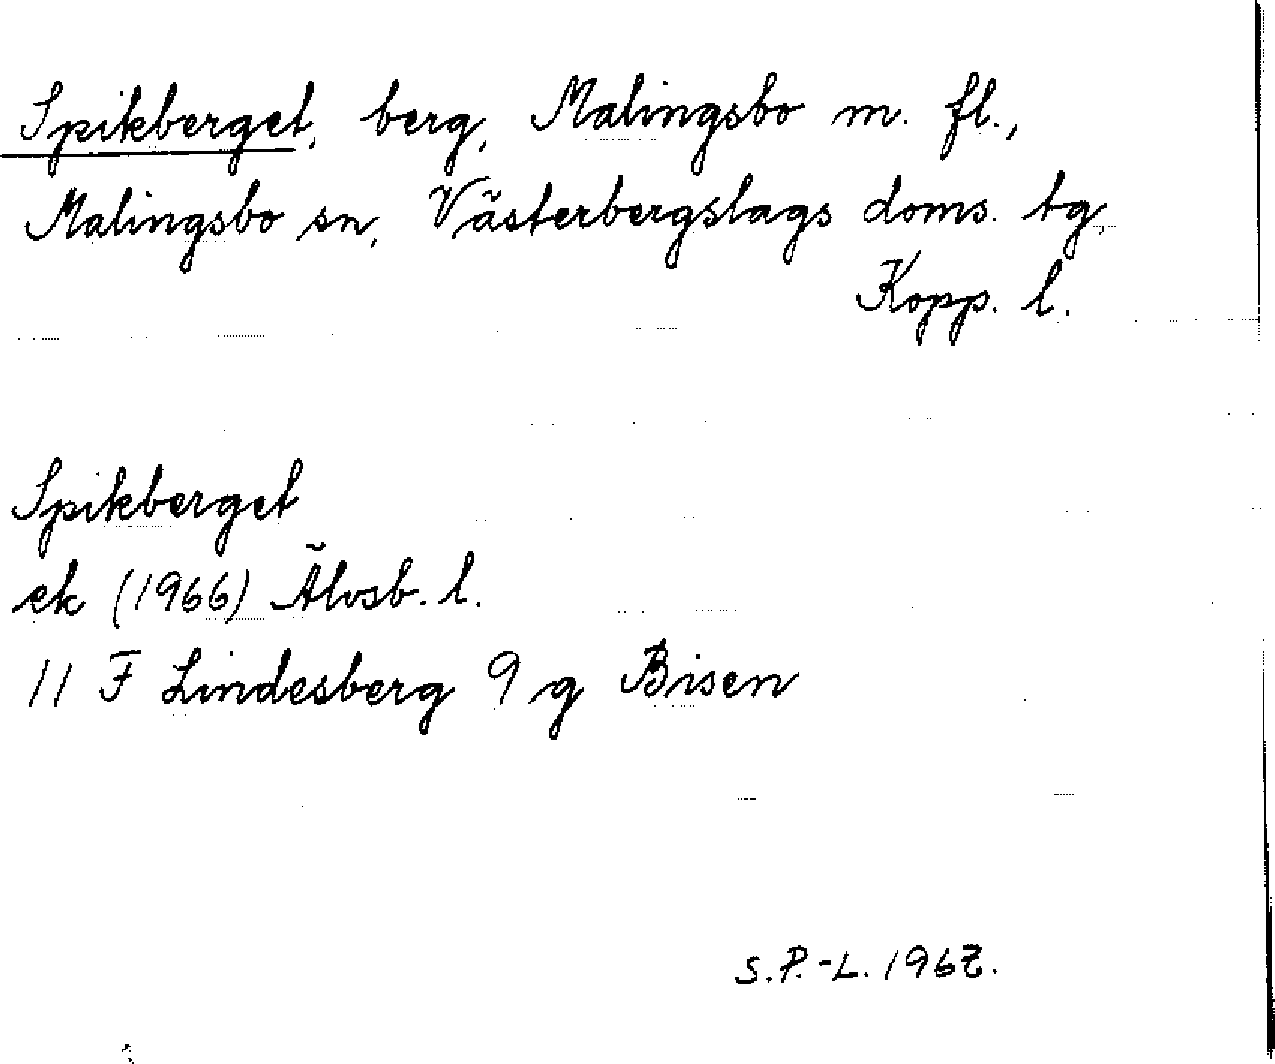 Spikberget, berg, Malingsbo m. fl.,
Malingsbo sn, Västerbergslags doms. tg,
Kopp. l.
Spikberget
ek (1966) Älvsb. l.
11 F Lindesberg 9 g Bisen
S.P.-L.